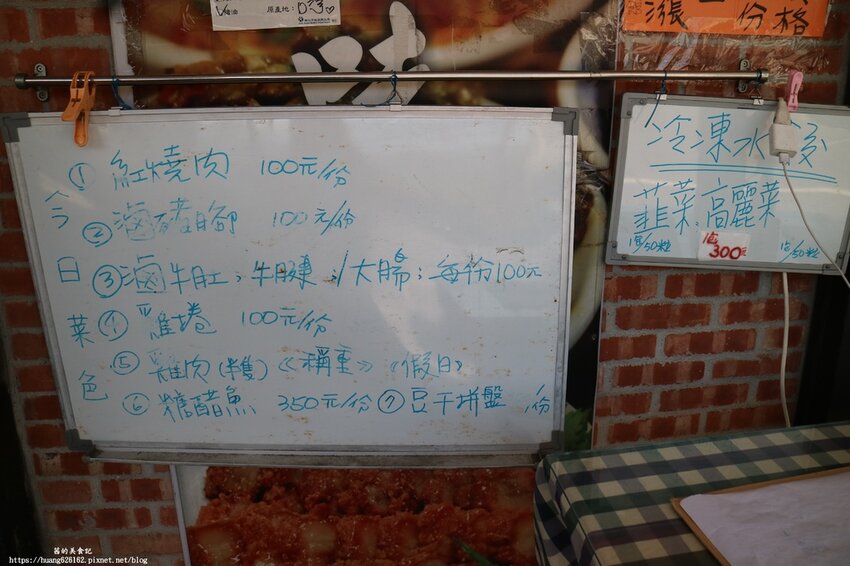 原產地:
漲
份格
味
今日菜色
① 紅燒肉 100元/份
② 滷豬腳 100元/份
③ 滷牛肚,牛腱,大腸;每份100元
④ 雞捲 100元/份
⑤ 雞肉(隻)《稱重》《假日》
⑥ 糖醋魚 350元/份 ⑦ 豆干拼盤 /份
冷凍水
韮菜、高麗菜
1包/50粒 1包300元 1包/50粒
茗的美食記
https://huang626162.pixnet.net/blog